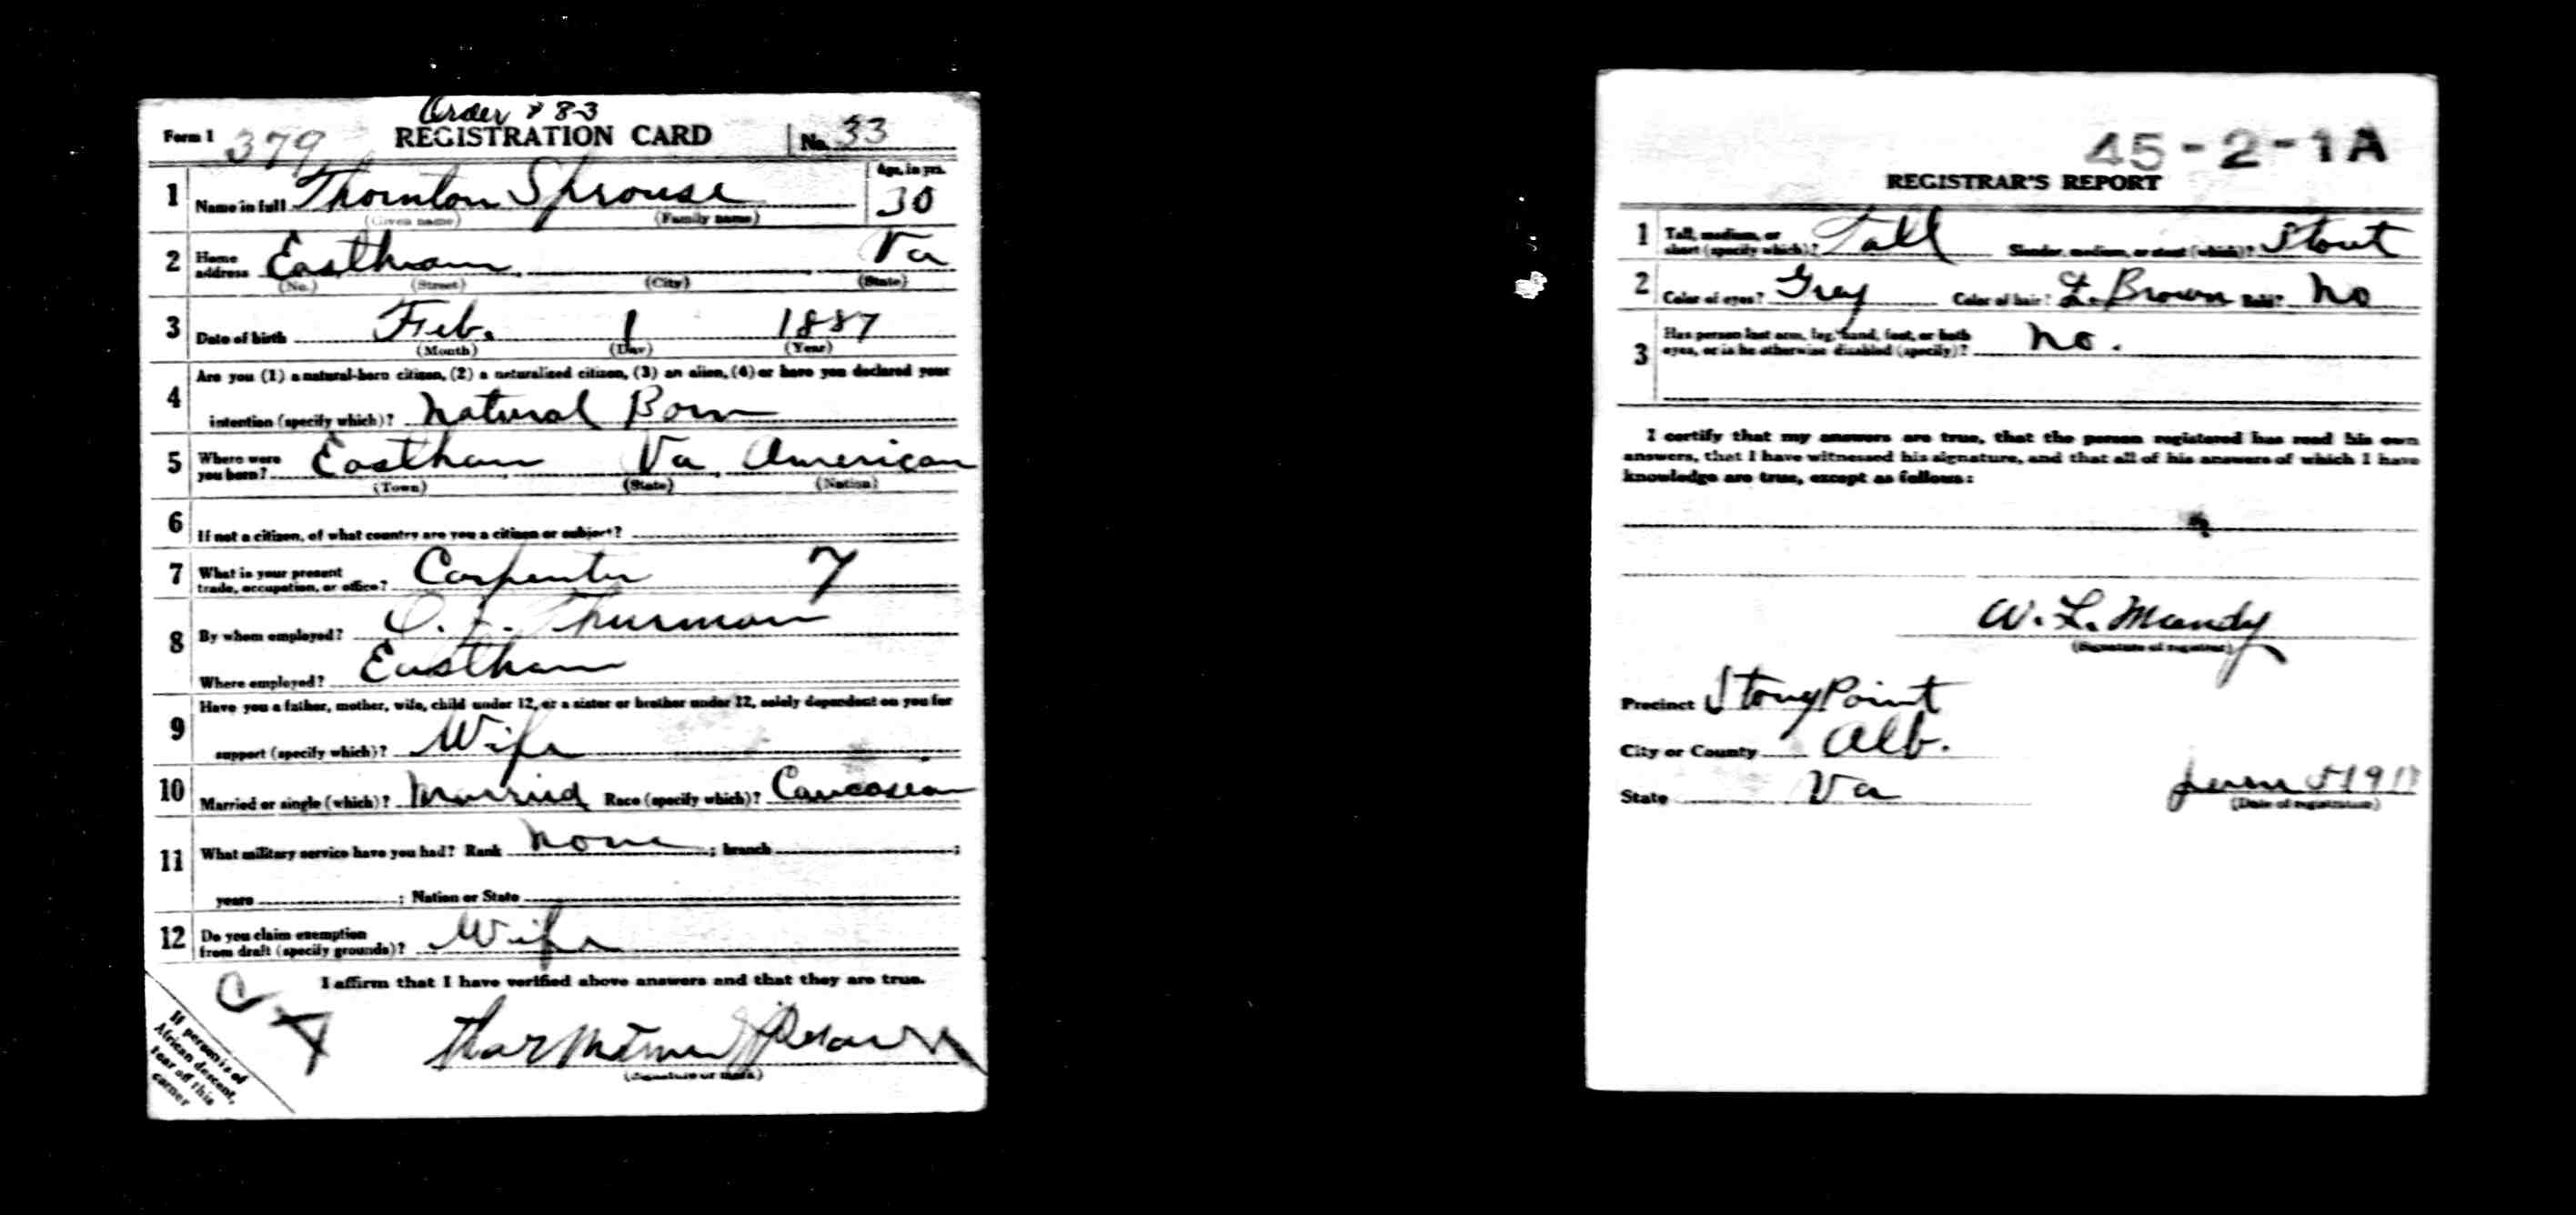 Order # 83
Form 1 379 REGISTRATION CARD No. 33
1 Name in full Thornton Sprouse Age, in yrs. 30
(Given name) (Family name)
2 Home address Eastham Va
(No.) (Street) (City) (State)
3 Date of birth Feb. 1 1887
(Month) (Day) (Year)
4 Are you (1) a natural-born citizen, (2) a naturalized citizen, (3) an alien, (4) or have you declared your
intention (specify which)? Natural Born
5 Where were you born? Eastham Va American
(Town) (State) (Nation)
6 If not a citizen, of what country are you a citizen or subject?
7 What is your present trade, occupation, or office? Carpenter 7
8 By whom employed? Thurman
Where employed? Eastham
9 Have you a father, mother, wife, child under 12, or a sister or brother under 12, solely dependent on you for
support (specify which)? Wife
10 Married or single (which)? Married Race (specify which)? Caucasian
11 What military service have you had? Rank None ; branch ;
years ; Nation or State
12 Do you claim exemption from draft (specify grounds)? Wife
I affirm that I have verified above answers and that they are true.
(Signature or mark)
If person is of
African descent,
tear off this
corner
45-2-1A
REGISTRAR'S REPORT
1 Tall, medium, or short (specify which)? Tall Slender, medium, or stout (which)? Stout
2 Color of eyes? Grey Color of hair? L. Brown Bald? No
3 Has person lost arm, leg, hand, foot, or both
eyes, or is he otherwise disabled (specify)? No.
I certify that my answers are true, that the person registered has read his own
answers, that I have witnessed his signature, and that all of his answers of which I have
knowledge are true, except as follows:
W. L. Mundy
(Signature of registrar)
Precinct Stony Point
City or County Alb.
State Va June 5 1917
(Date of registration)